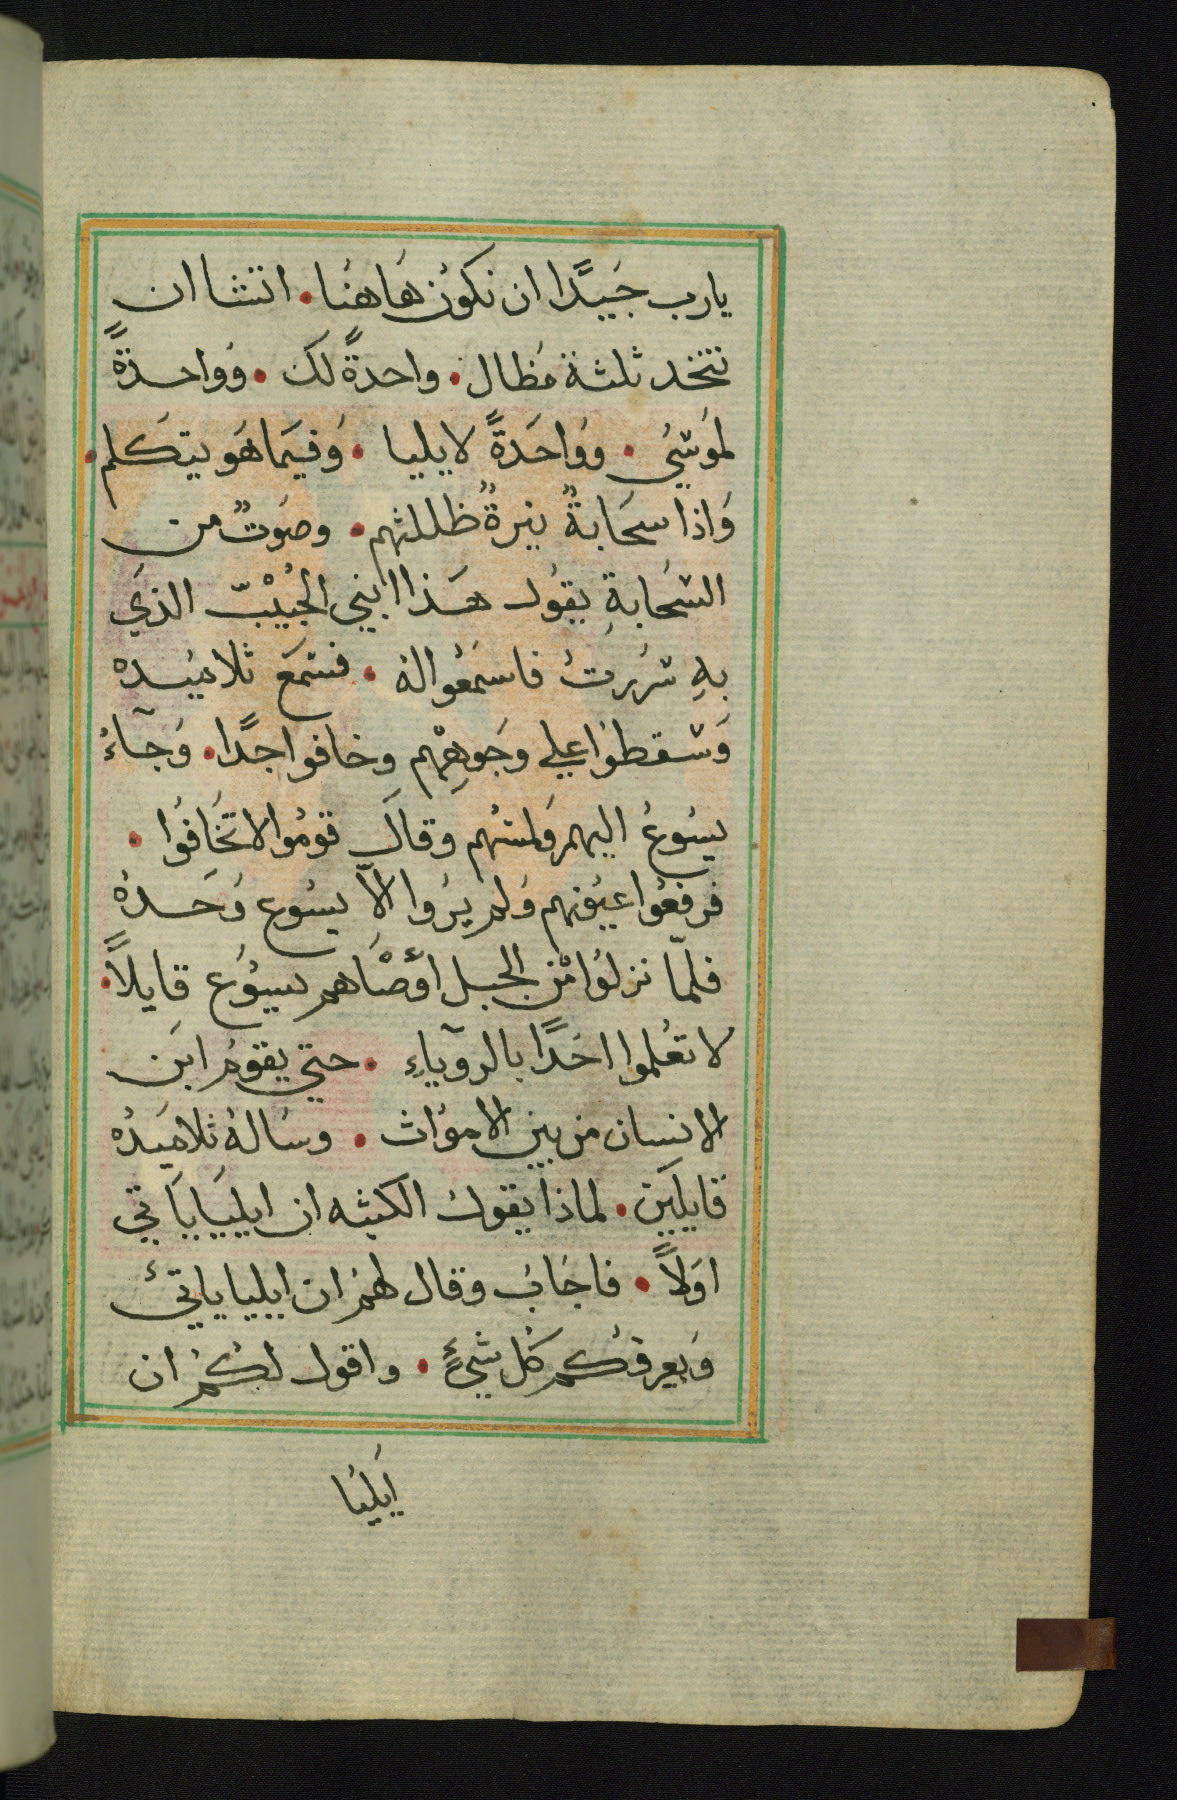 يارب جَيدًا ان نكون هَاهنا. اتشا ان
نتخد ثلثة مظال. واحدةً لك. وَواحدةً
لموسَي. وَواحَدةً لايليا. وَفيَما هَو يتكلم.
وَاذا سحَابةٌ نيرةٌ ظللتهم. وصَوتٌ من
السَحابةِ يقول هَذا ابني الحبيْبّ الذيَ
بهِ سررتُ فاسمَعُوا لهُ. فسَمَع تلاميده
وَسقطوا علي وجَوههْم وخافوا جدًا. وَجآءُ
يسوعُ اليهم وَلمسَهم وقالَ قومُوا لا تخَافوا.
فرفعُوا عيوَنهم وَلم يَروا الآ يسُوع وَحَدهُ
فلمّا نزلوا منْ الجبل اوْصَاهم يسوُع قايلاً.
لا تعُلموا احَدًا بالروَياءِ. حتي يقومُ ابَن
الانسان من بين الاموَات. وسالهُ تلاميَدُه
قايليَن. لماذا يقولُ الكتبَه ان ايليَا يَاتي
اوَلاً. فاجَابَ وقال لهم ان ايليا ياتي
وَيعرفكم كل شيءٍ. واقول لكم ان
ايَليَا